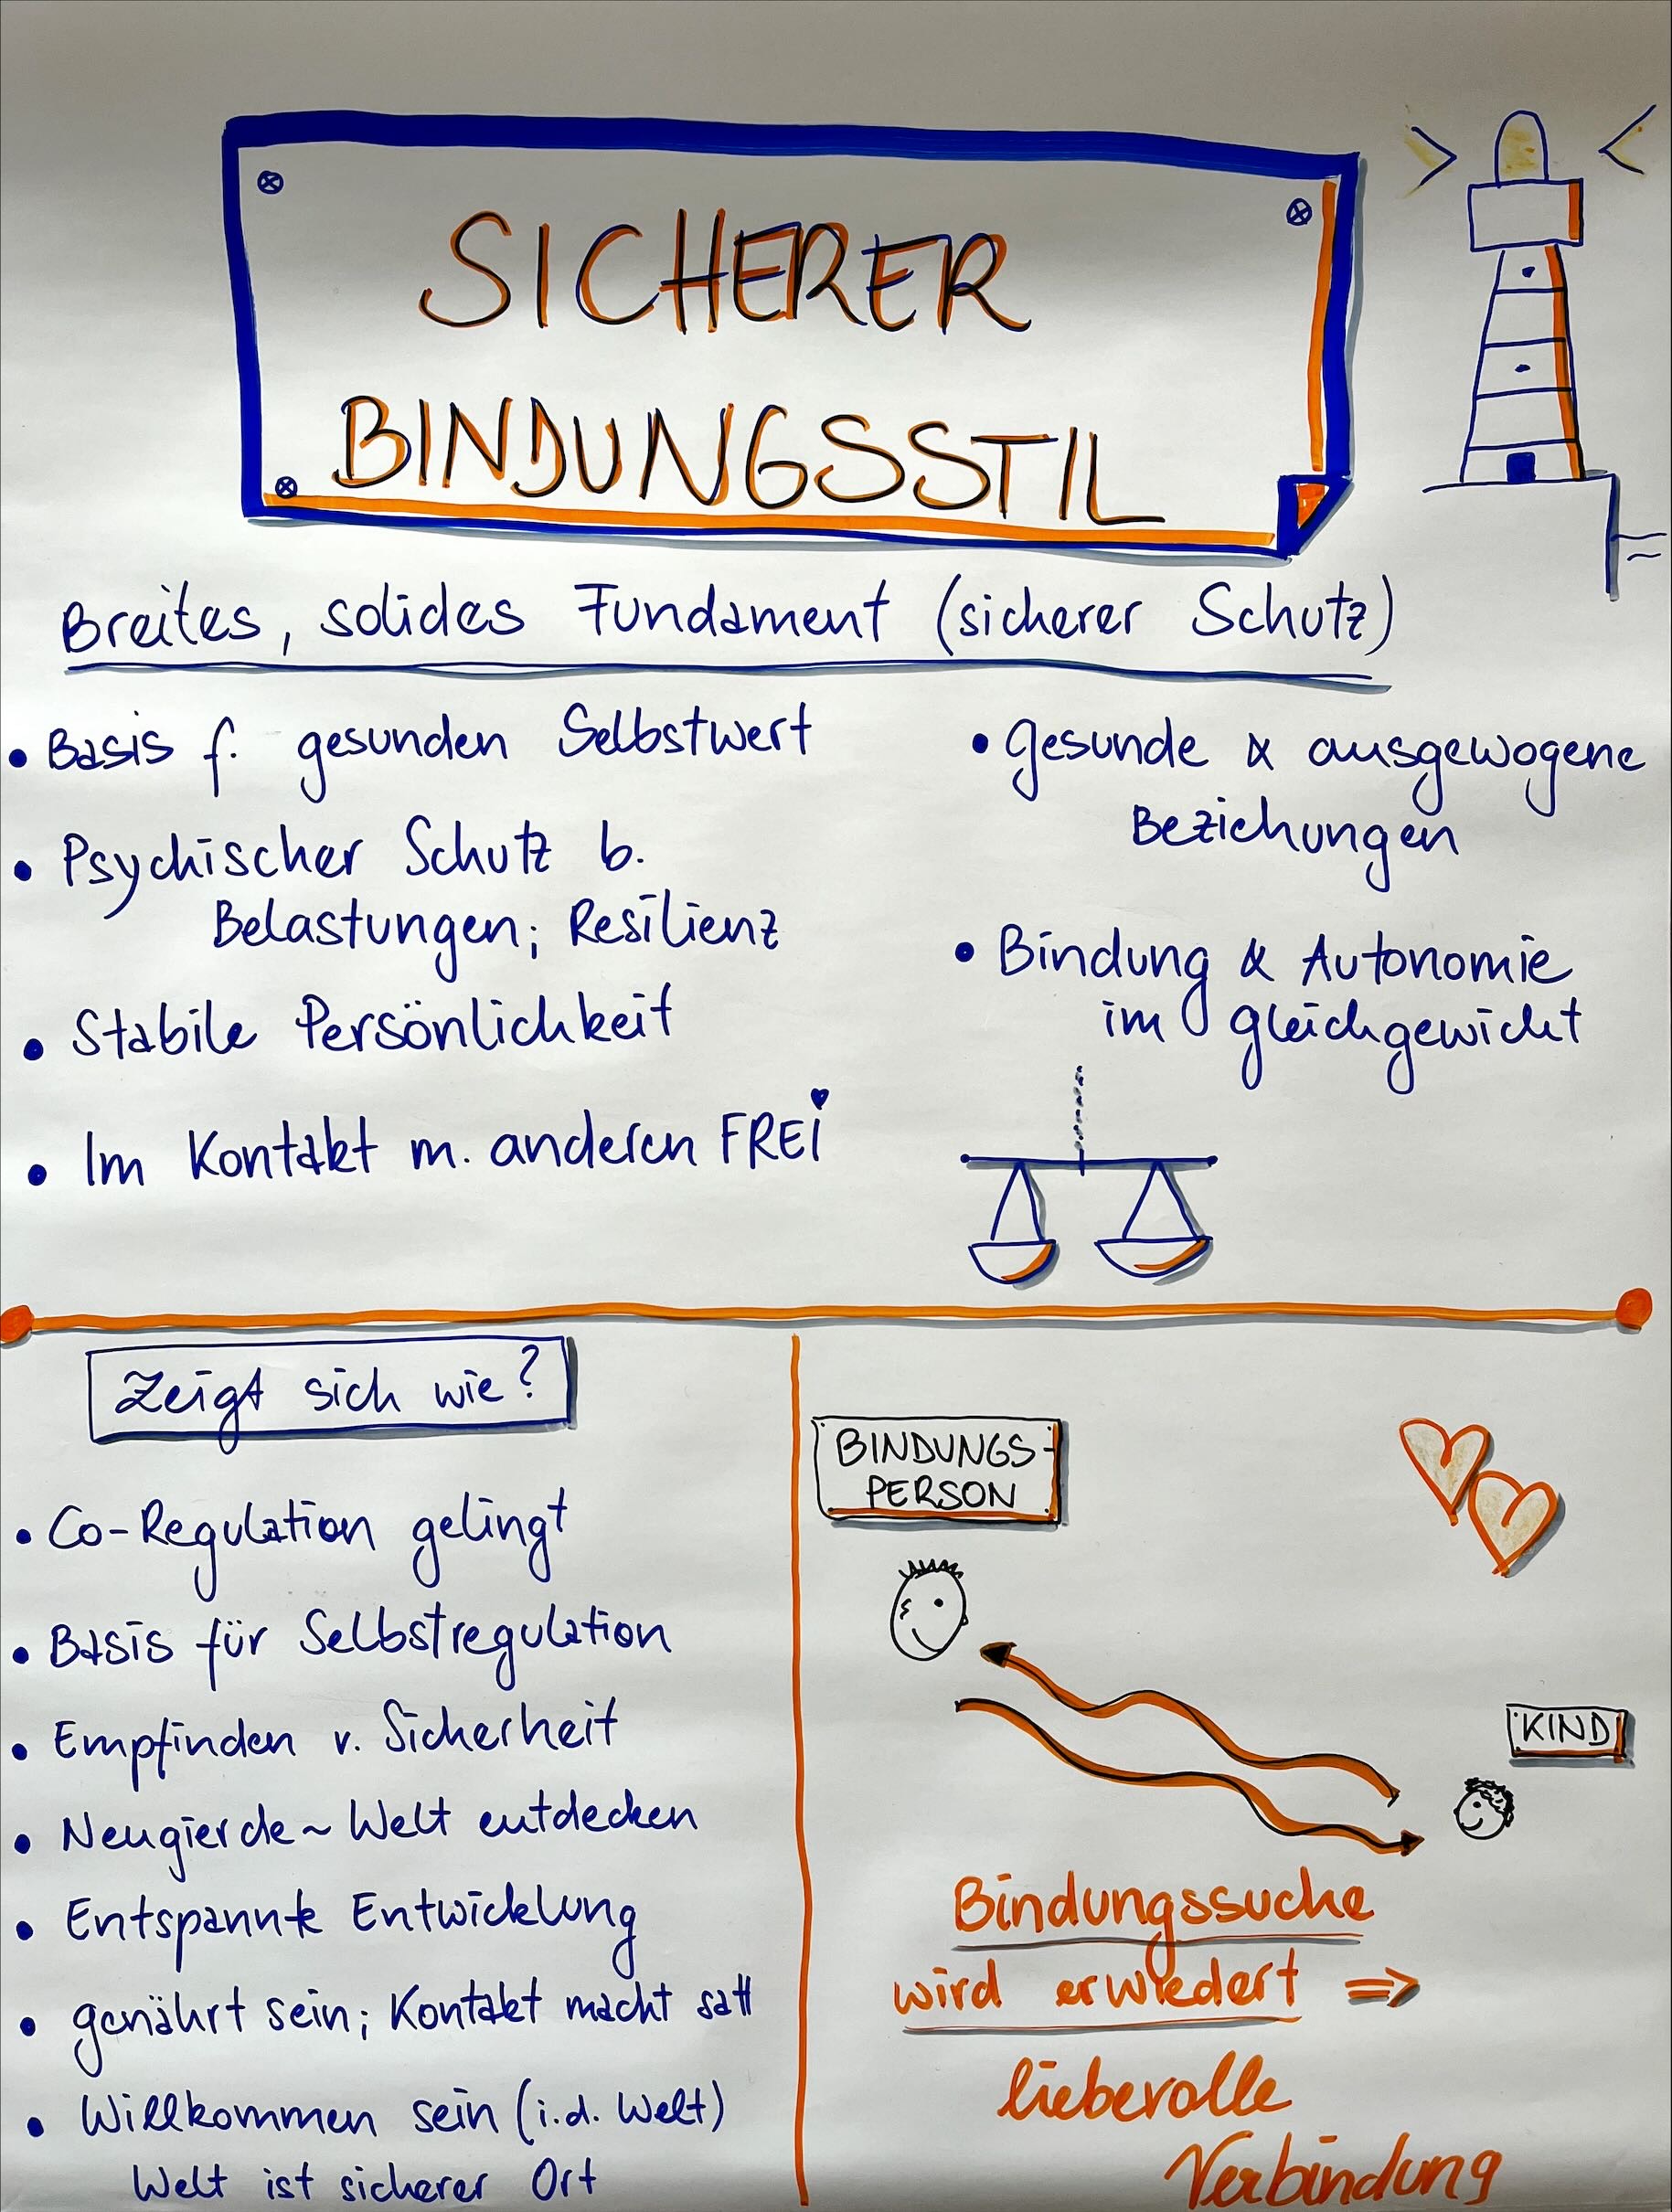 SICHERER
BINDUNGSSTIL
Breites, solides Fundament (sicherer Schutz)
• Basis f. gesunden Selbstwert
• Psychischer Schutz b.
Belastungen; Resilienz
• Stabile Persönlichkeit
• Im Kontakt m. anderen FREi
• Gesunde & ausgewogene
Beziehungen
• Bindung & Autonomie
im Gleichgewicht
Zeigt sich wie?
• Co-Regulation gelingt
• Basis für Selbstregulation
• Empfinden v. Sicherheit
• Neugierde ~ Welt entdecken
• Entspannte Entwicklung
• genährt sein; Kontakt macht satt
• Willkommen sein (i.d. Welt)
Welt ist sicherer Ort
BINDUNGS-
PERSON
KIND
Bindungssuche
wird erwiedert ⇒
liebevolle
Verbindung